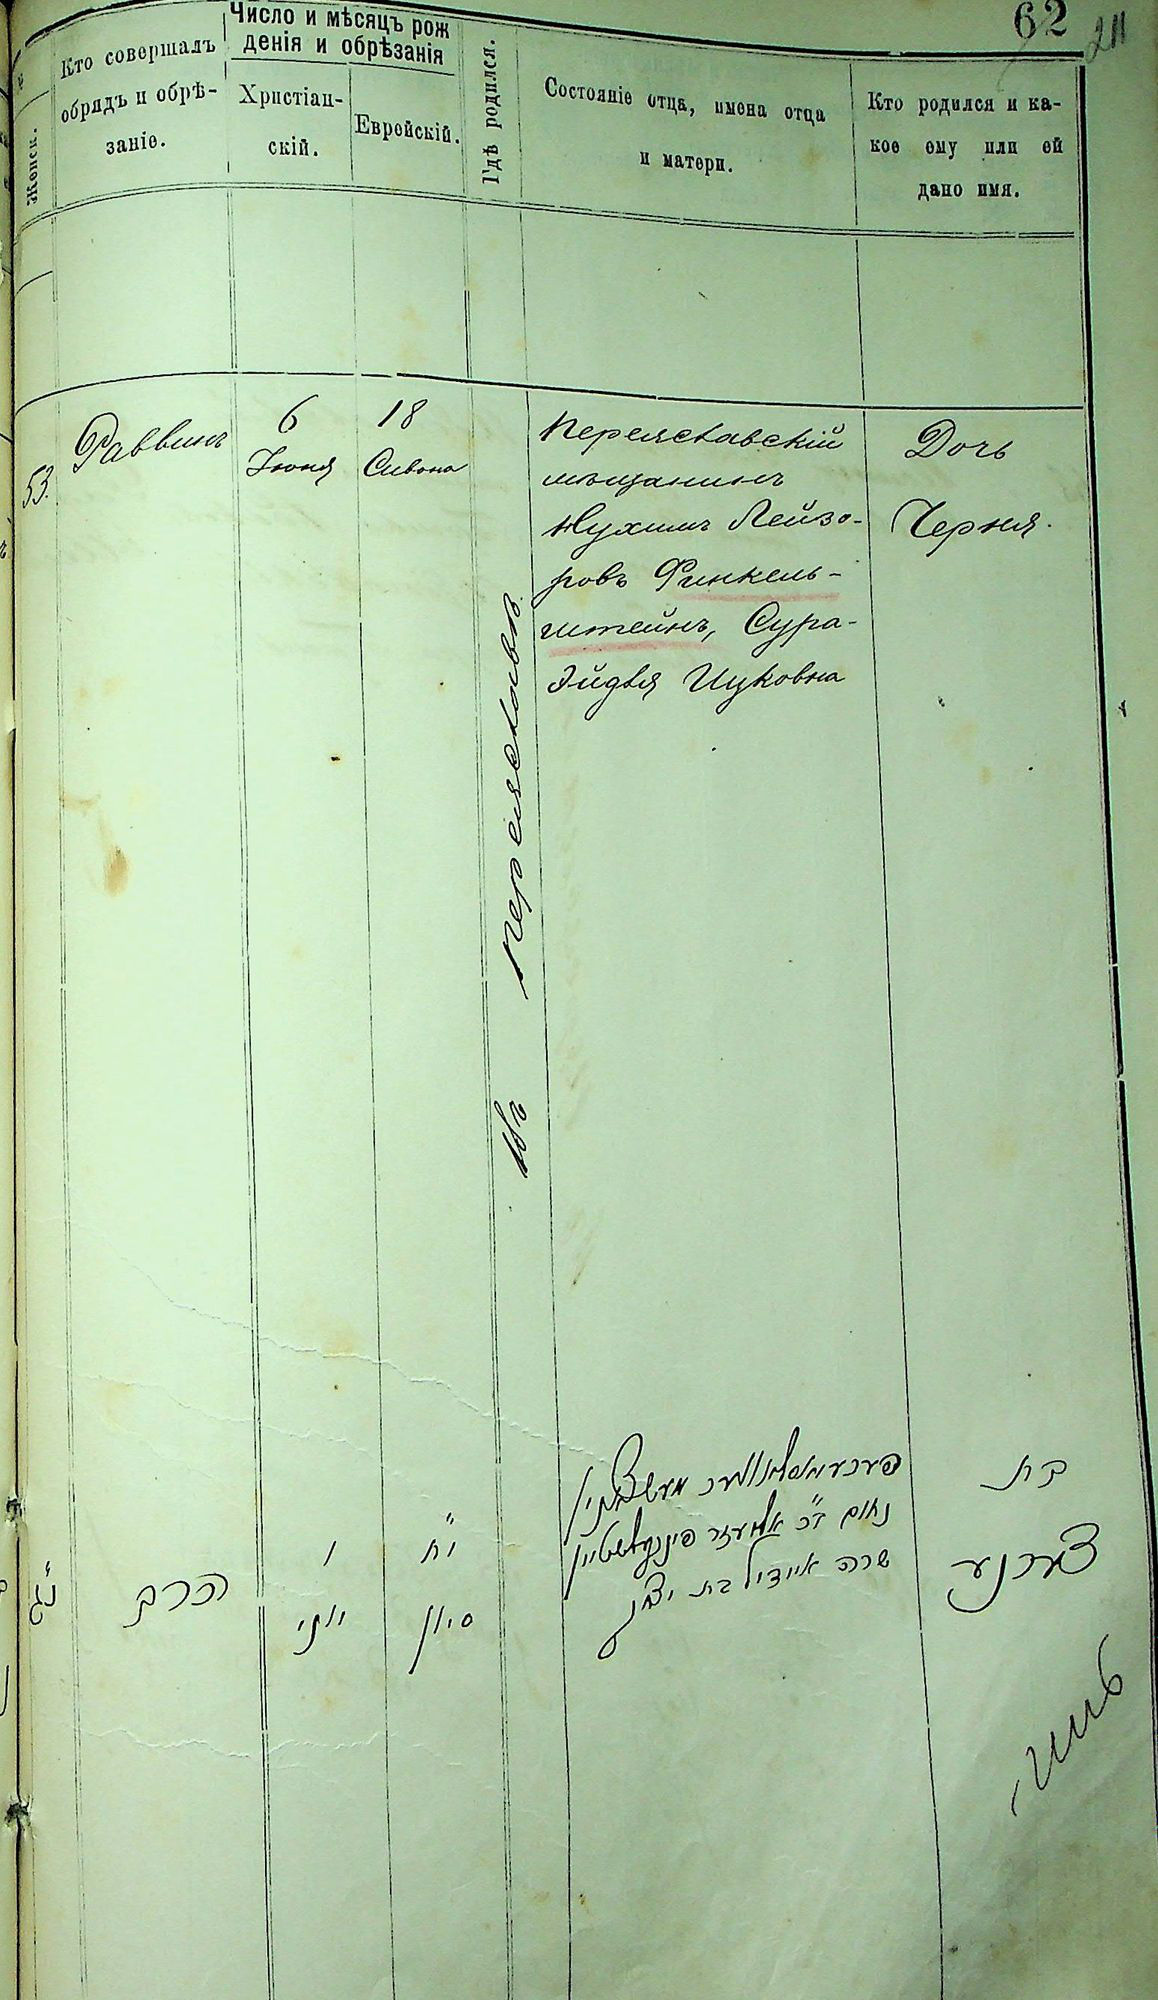 62
211
Женск.
Кто совершалъ
обрядъ и обрѣ-
заніе.
Число и мѣсяцъ рож
денія и обрѣзанія
Христіан-
скій.
Еврейскій.
Гдѣ родился.
Состояніе отца, имена отца
и матери.
Кто родился и ка-
кое ему или ей
дано имя.
53.
Раввинъ
6
Іюня
18
Сивона
въ Переяславѣ
Переяславскій
мѣщанинъ
Нухимъ Лейзо-
ровъ Финкель-
штейнъ, Сура-
Эйдля Ицковна
Дочь
Черня.
נ"ג
הרב
ו
יוני
י"ח
סיון
נחום ב"ר אליעזר פינקעלשטיין
שרה איידיל בת יצחק
בת
צערנע